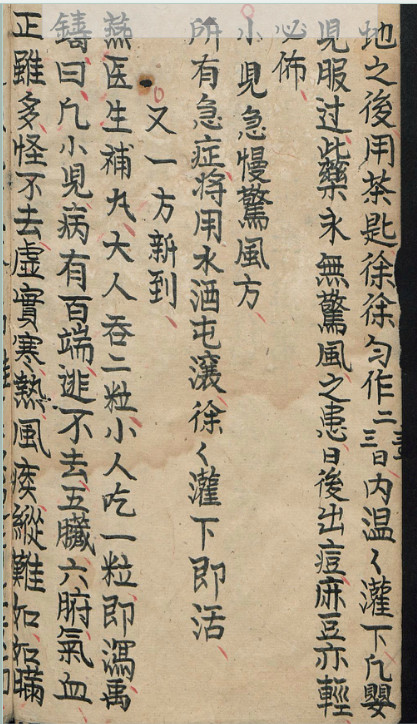 地之後用茶匙徐徐勻作二三日內温〻灌下凢嬰
児服过此藥永無驚風之患日後出痘麻豆亦輕
必佈
小児急慢驚風方
所有急症将用水洒屯瀼徐〻灌下即活
又一方新到
燕医生補丸大人吞二粒小人吃一粒即瀉禹
鑄曰凢小児病有百端逃不去五臟六腑氣血
正雖多怪不去虛實寒熱風痰縱難如